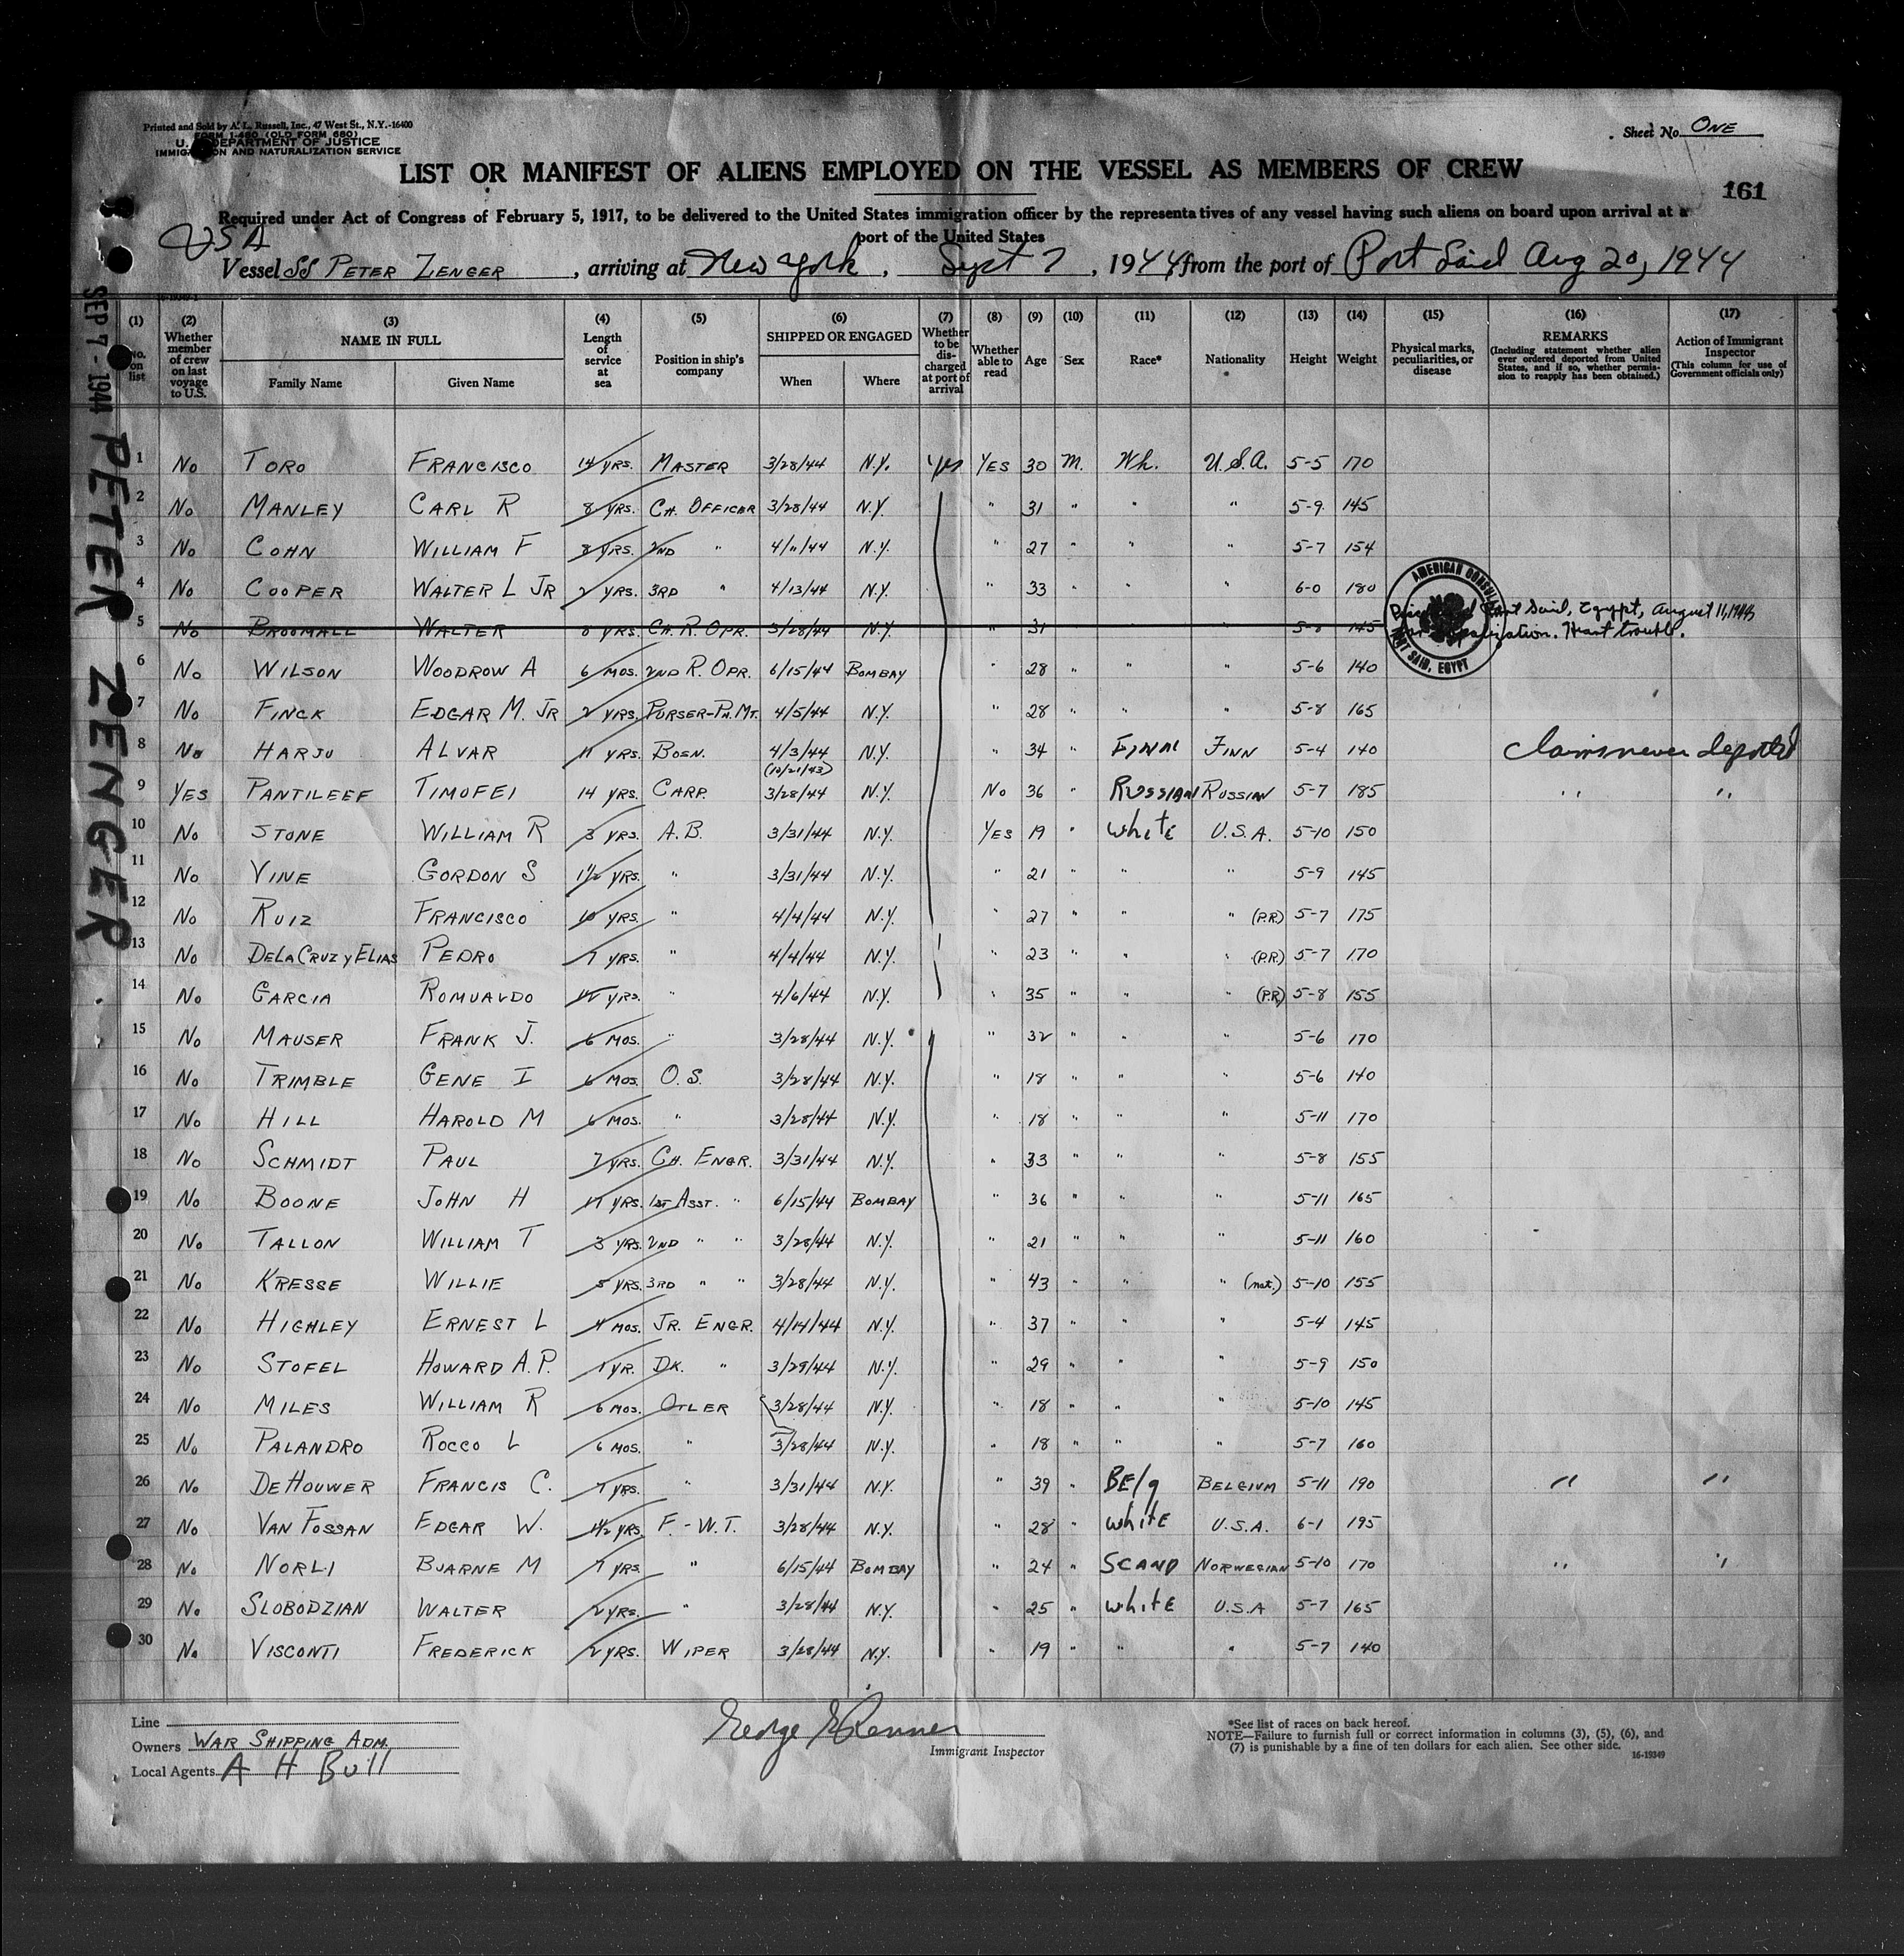 Printed and Sold by A. L. Russell, Inc., 47 West St., N.Y.-16400
FORM I-480 (OLD FORM 680)
U. DEPARTMENT OF JUSTICE
IMMIGRATION AND NATURALIZATION SERVICE
Sheet No. ONE
LIST OR MANIFEST OF ALIENS EMPLOYED ON THE VESSEL AS MEMBERS OF CREW
161
Required under Act of Congress of February 5, 1917, to be delivered to the United States immigration officer by the representatives of any vessel having such aliens on board upon arrival at a
port of the United States
USA
Vessel SS PETER ZENGER, arriving at New York, Sept 7, 1944, from the port of Port Said Aug 20, 1944
SEP 7-1944 PETER ZENGER
(1) No. on list
(2) Whether member of crew on last voyage to U.S.
(3) NAME IN FULL Family Name Given Name
(4) Length of service at sea
(5) Position in ship's company
(6) SHIPPED OR ENGAGED When Where
(7) Whether to be discharged at port of arrival
(8) Whether able to read
(9) Age
(10) Sex
(11) Race*
(12) Nationality
(13) Height
(14) Weight
(15) Physical marks, peculiarities, or disease
(16) REMARKS (Including statement whether alien ever ordered deported from United States, and if so, whether permission to reapply has been obtained.)
(17) Action of Immigrant Inspector (This column for use of Government officials only)
1 No TORO FRANCISCO 14 YRS. MASTER 3/28/44 N.Y. Yes YES 30 M. Wh. U.S.A. 5-5 170
2 No MANLEY CARL R 8 YRS. CH. OFFICER 3/28/44 N.Y. " 31 " " " 5-9 145
3 No COHN WILLIAM F 8 YRS. 2ND " 4/11/44 N.Y. " 27 " " " 5-7 154
4 No COOPER WALTER L JR 2 YRS. 3RD " 4/13/44 N.Y. " 33 " " " 6-0 180
5 No BROOMALL WALTER 8 YRS. CH. R. OPR. 3/28/44 N.Y. " 31 " 5-8 145 Port Said, Egypt, August 11, 1944
Heart trouble.
AMERICAN CONSULATE PORT SAID, EGYPT
6 No WILSON WOODROW A 6 MOS. 2ND R. OPR. 6/15/44 BOMBAY " 28 " " " 5-6 140
7 No FINCK EDGAR M. JR 2 YRS. PURSER-PH. MT. 4/5/44 N.Y. " 28 " " " 5-8 165
8 No HARJU ALVAR 11 YRS. BOSN. 4/3/44 N.Y. " 34 " FINN FINN 5-4 140 Claims never deported
(10/21/43)
9 YES PANTILEEF TIMOFEI 14 YRS. CARP. 3/28/44 N.Y. No 36 " RUSSIAN RUSSIAN 5-7 185 " "
10 No STONE WILLIAM R 3 YRS. A.B. 3/31/44 N.Y. YES 19 " white U.S.A. 5-10 150
11 No VINE GORDON S 1½ YRS. " 3/31/44 N.Y. " 21 " " 5-9 145
12 No RUIZ FRANCISCO 10 YRS. " 4/4/44 N.Y. " 27 " " " (P.R.) 5-7 175
13 No DELACRUZ Y ELIAS PEDRO 7 YRS. " 4/4/44 N.Y. " 23 " " " (P.R.) 5-7 170
14 No GARCIA ROMUALDO YRS. " 4/6/44 N.Y. " 35 " " " (P.R.) 5-8 155
15 No MAUSER FRANK J. 6 MOS. " 3/28/44 N.Y. " 32 " " " 5-6 170
16 No TRIMBLE GENE I 6 MOS. O.S. 3/28/44 N.Y. " 18 " " " 5-6 140
17 No HILL HAROLD M 6 MOS. " 3/28/44 N.Y. " 18 " " " 5-11 170
18 No SCHMIDT PAUL 7 YRS. CH. ENGR. 3/31/44 N.Y. " 33 " " " 5-8 155
19 No BOONE JOHN H 17 YRS. 1ST ASST. " 6/15/44 BOMBAY " 36 " " " 5-11 165
20 No TALLON WILLIAM T 3 YRS. 2ND " " 3/28/44 N.Y. " 21 " " " 5-11 160
21 No KRESSE WILLIE 5 YRS. 3RD " " 3/28/44 N.Y. " 43 " " " (nat.) 5-10 155
22 No HIGHLEY ERNEST L 4 MOS. JR. ENGR. 4/14/44 N.Y. " 37 " " " 5-4 145
23 No STOFEL HOWARD A.P. 1 YR. DK. " 3/29/44 N.Y. " 29 " " " 5-9 150
24 No MILES WILLIAM R 6 MOS. OILER 3/28/44 N.Y. " 18 " " " 5-10 145
25 No PALANDRO ROCCO L 6 MOS. " 3/28/44 N.Y. " 18 " " " 5-7 160
26 No DEHOUWER FRANCIS C. 7 YRS. " 3/31/44 N.Y. " 39 " BElg BELGIUM 5-11 190 " "
27 No VAN FOSSAN EDGAR W. 1½ YRS. F.-W.T. 3/28/44 N.Y. " 28 " white U.S.A. 6-1 195
28 No NORLI BJARNE M 7 YRS. " 6/15/44 BOMBAY " 24 " SCAND NORWEGIAN 5-10 170 " "
29 No SLOBODZIAN WALTER 2 YRS. " 3/28/44 N.Y. " 25 " white U.S.A 5-7 165
30 No VISCONTI FREDERICK 2 YRS. WIPER 3/28/44 N.Y. " 19 " " " 5-7 140
Line
Owners WAR SHIPPING ADM.
Local Agents A H Bull
George Renner
Immigrant Inspector
*See list of races on back hereof.
NOTE—Failure to furnish full or correct information in columns (3), (5), (6), and
(7) is punishable by a fine of ten dollars for each alien. See other side.
16-19349